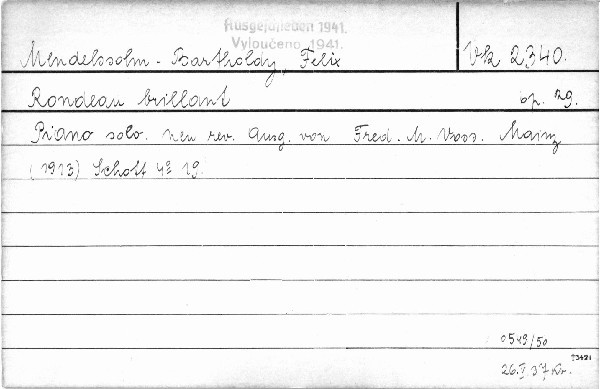 Ausgeschieden 1941.
Vyloučeno 1941.
Mendelssohn-Bartholdy, Felix Vk 2340.
Rondeau brillant op. 29.
Piano solo. neu rev. Ausg. von Fred. M. Voss. Mainz
(1913) Schott 4° 19.
0549/50
T3421
26.I 37 Kr.